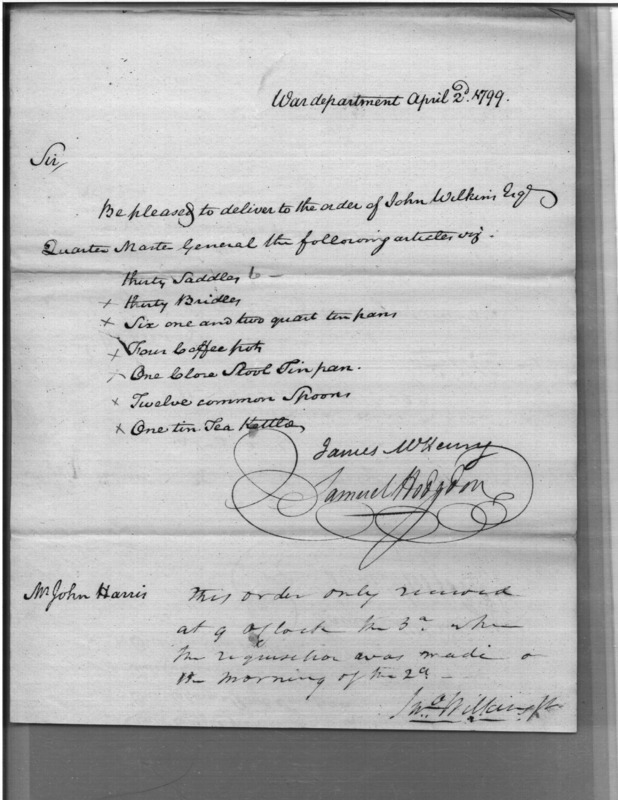 War department April 2d. 1799.
Sir,
Be pleased to deliver to the order of John Wilkins Esqr
Quarter Master General the following articles viz.
thirty Saddles 6 —
x thirty Bridles
x Six one and two quart tin pans
x Four Coffee pots
x One Close Stool Tin pan.
x Twelve common Spoons
x One tin Tea Kettle
James McHenry
Samuel Hodgdon
Mr John Harris
This order only received
at 9 OClock the 3d. when
the requisition was made o
the morning of the 2d —
Jno Wilkins